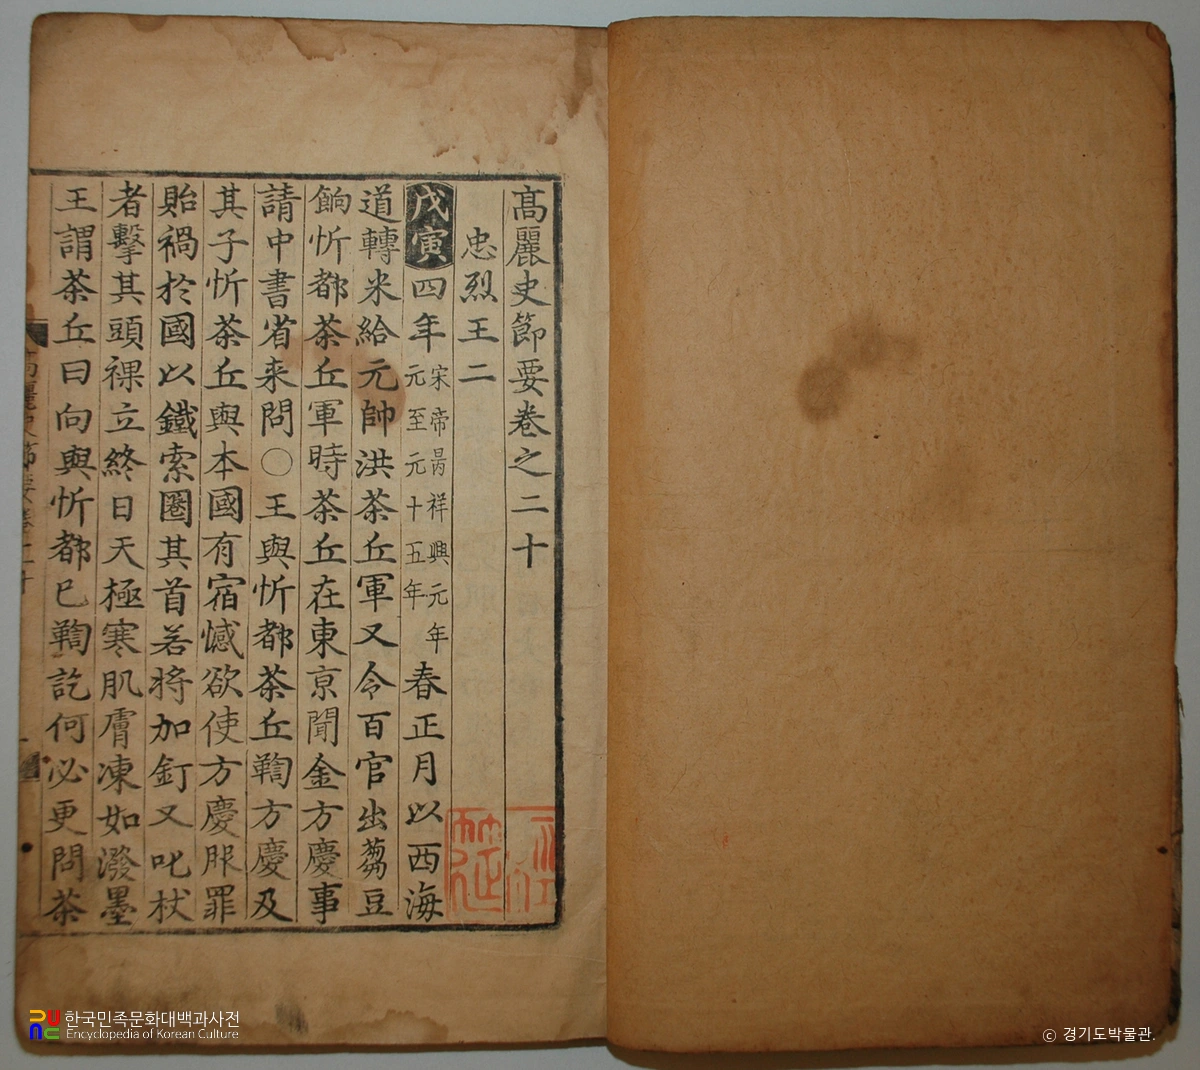 高麗史節要卷之二十
忠烈王二
戊寅四年宋帝昺祥興元年元至元十五年春正月以西海
道轉米給元帥洪茶丘軍又令百官出蒭豆
餉忻都茶丘軍時茶丘在東京聞金方慶事
請中書省来問〇王與忻都茶丘鞫方慶及
其子忻茶丘與本國有宿憾欲使方慶服罪
貽禍於國以鐵索圈其首若將加釘又叱杖
者擊其頭裸立終日天極寒肌膚凍如潑墨
王謂茶丘曰向與忻都已鞫訖何必更問茶
한국민족문화대백과사전
Encyclopedia of Korean Culture
ⓒ 경기도박물관.